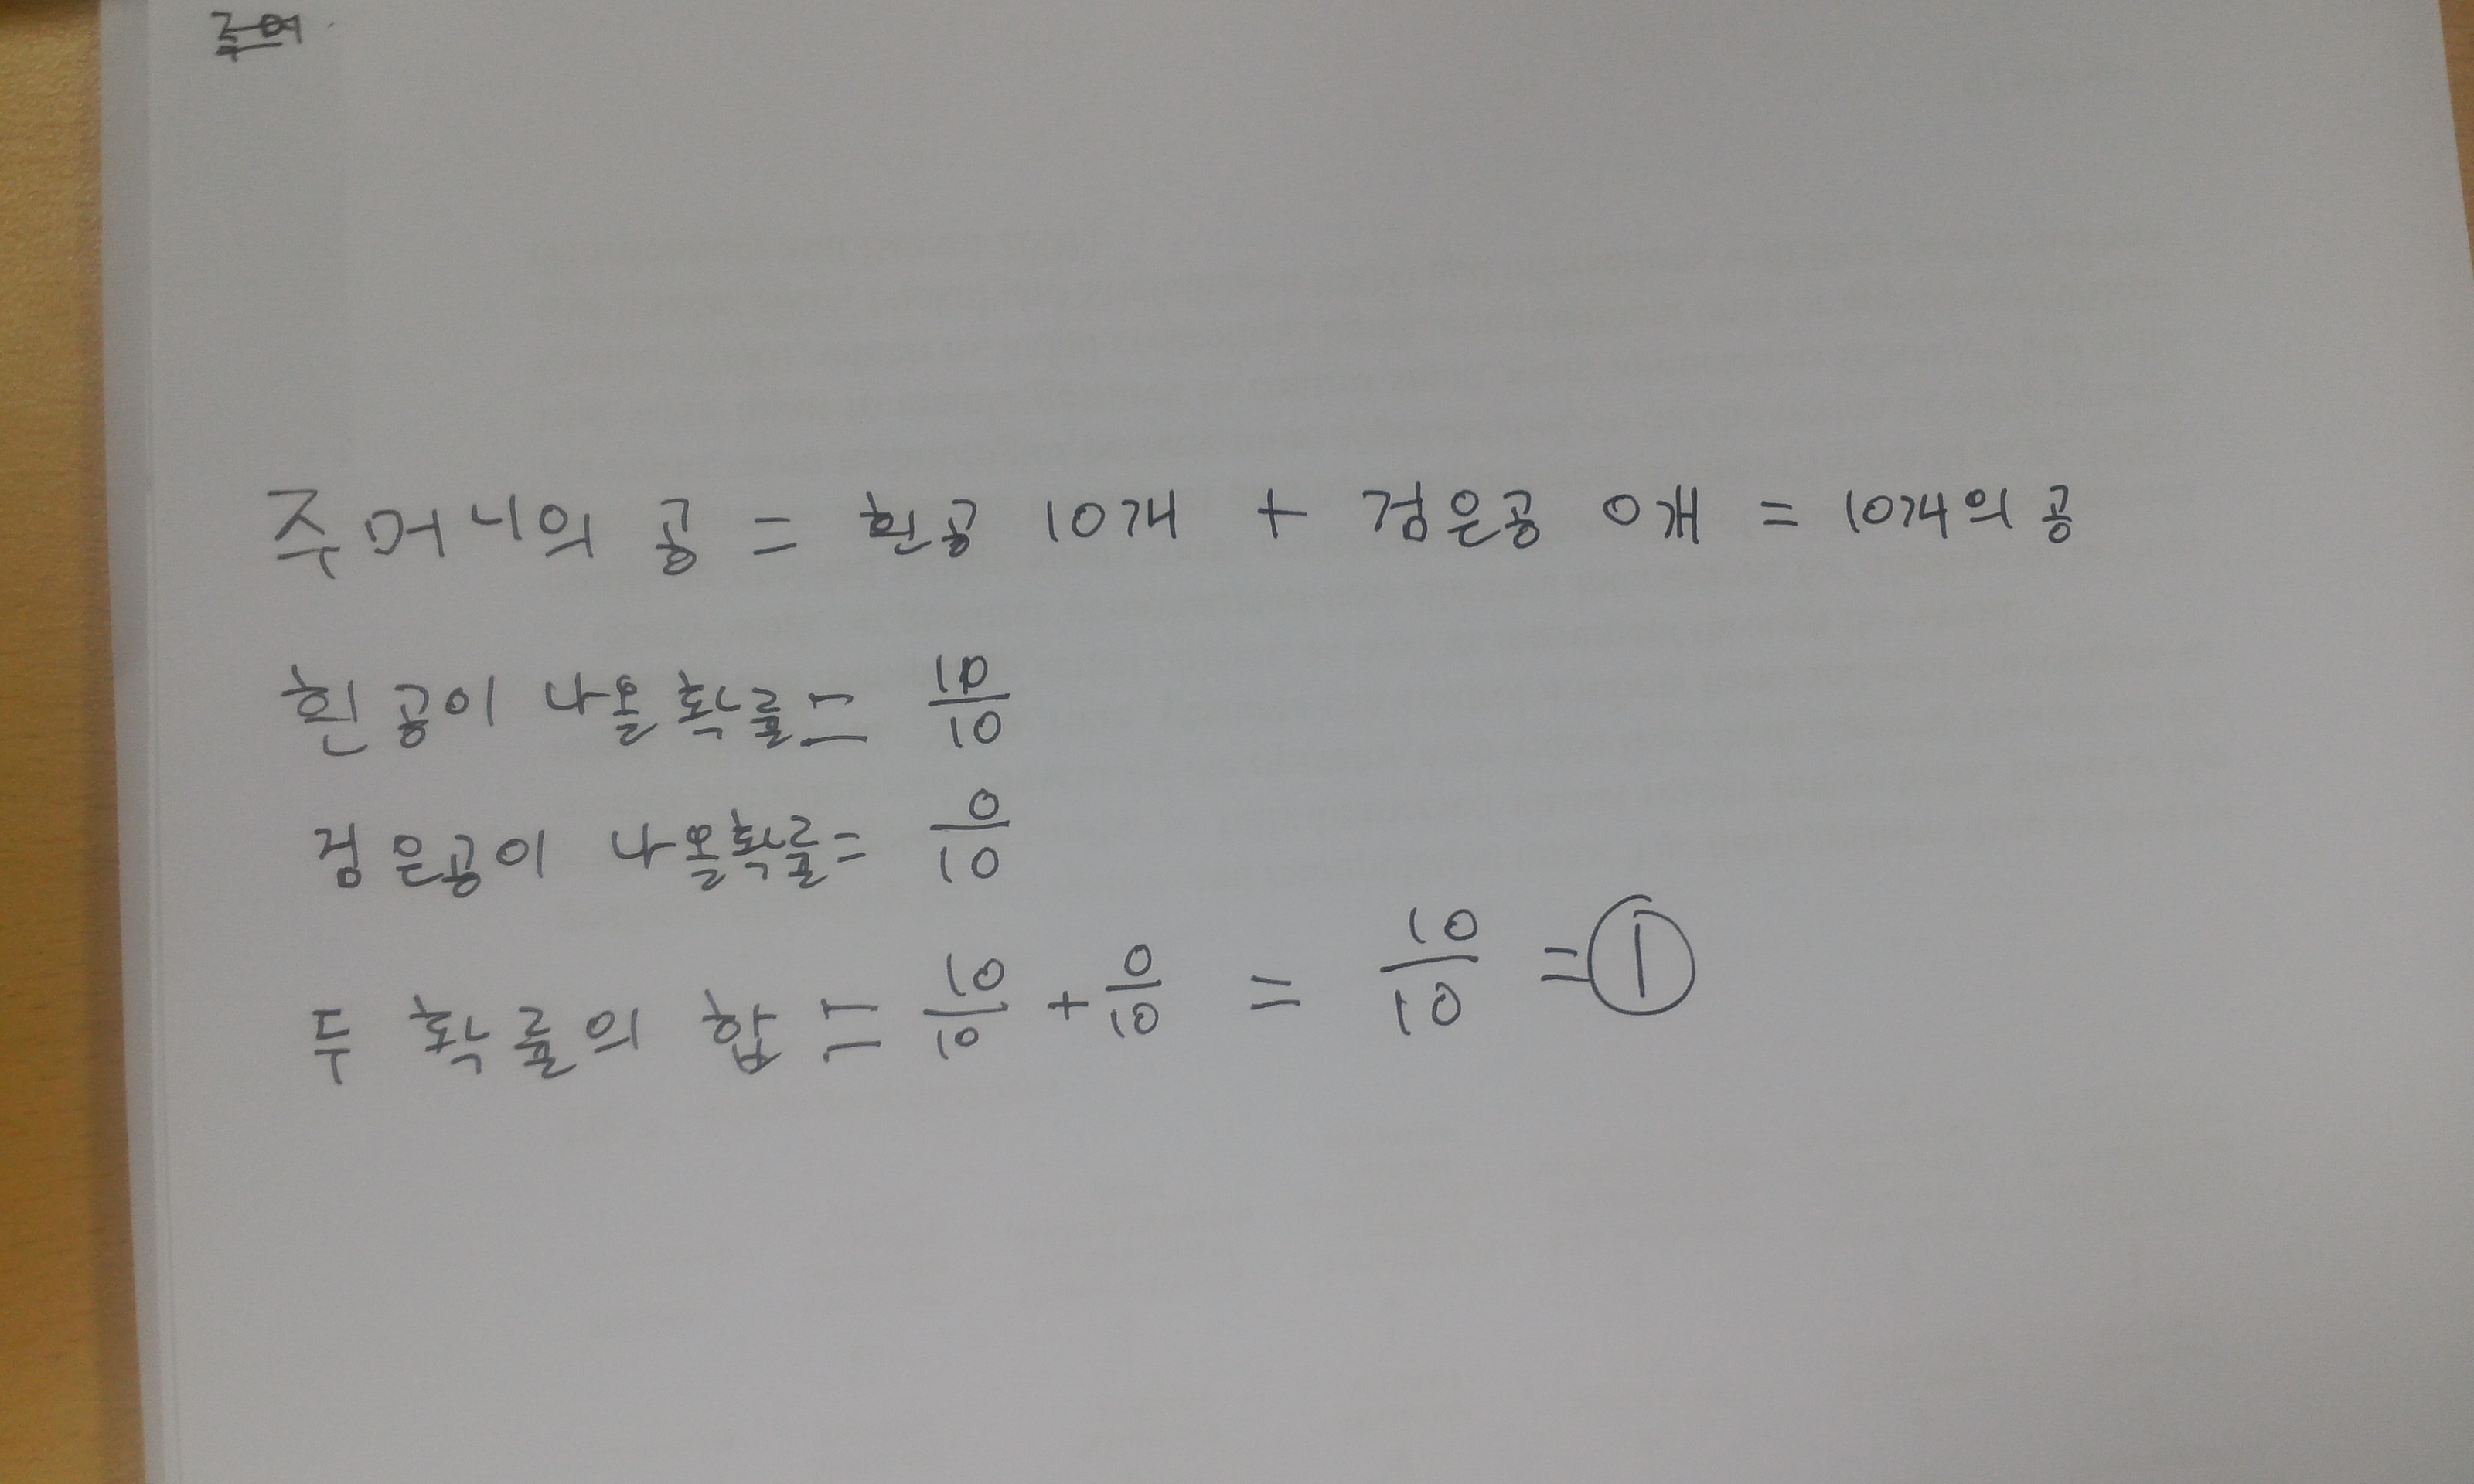 주머니의 공 = 흰공 10개 + 검은공 0개 = 10개의 공
흰공이 나올 확률 = 10/10
검은공이 나올확률 = 0/10
두 확률의 합 = 10/10 + 0/10 = 10/10 = 1